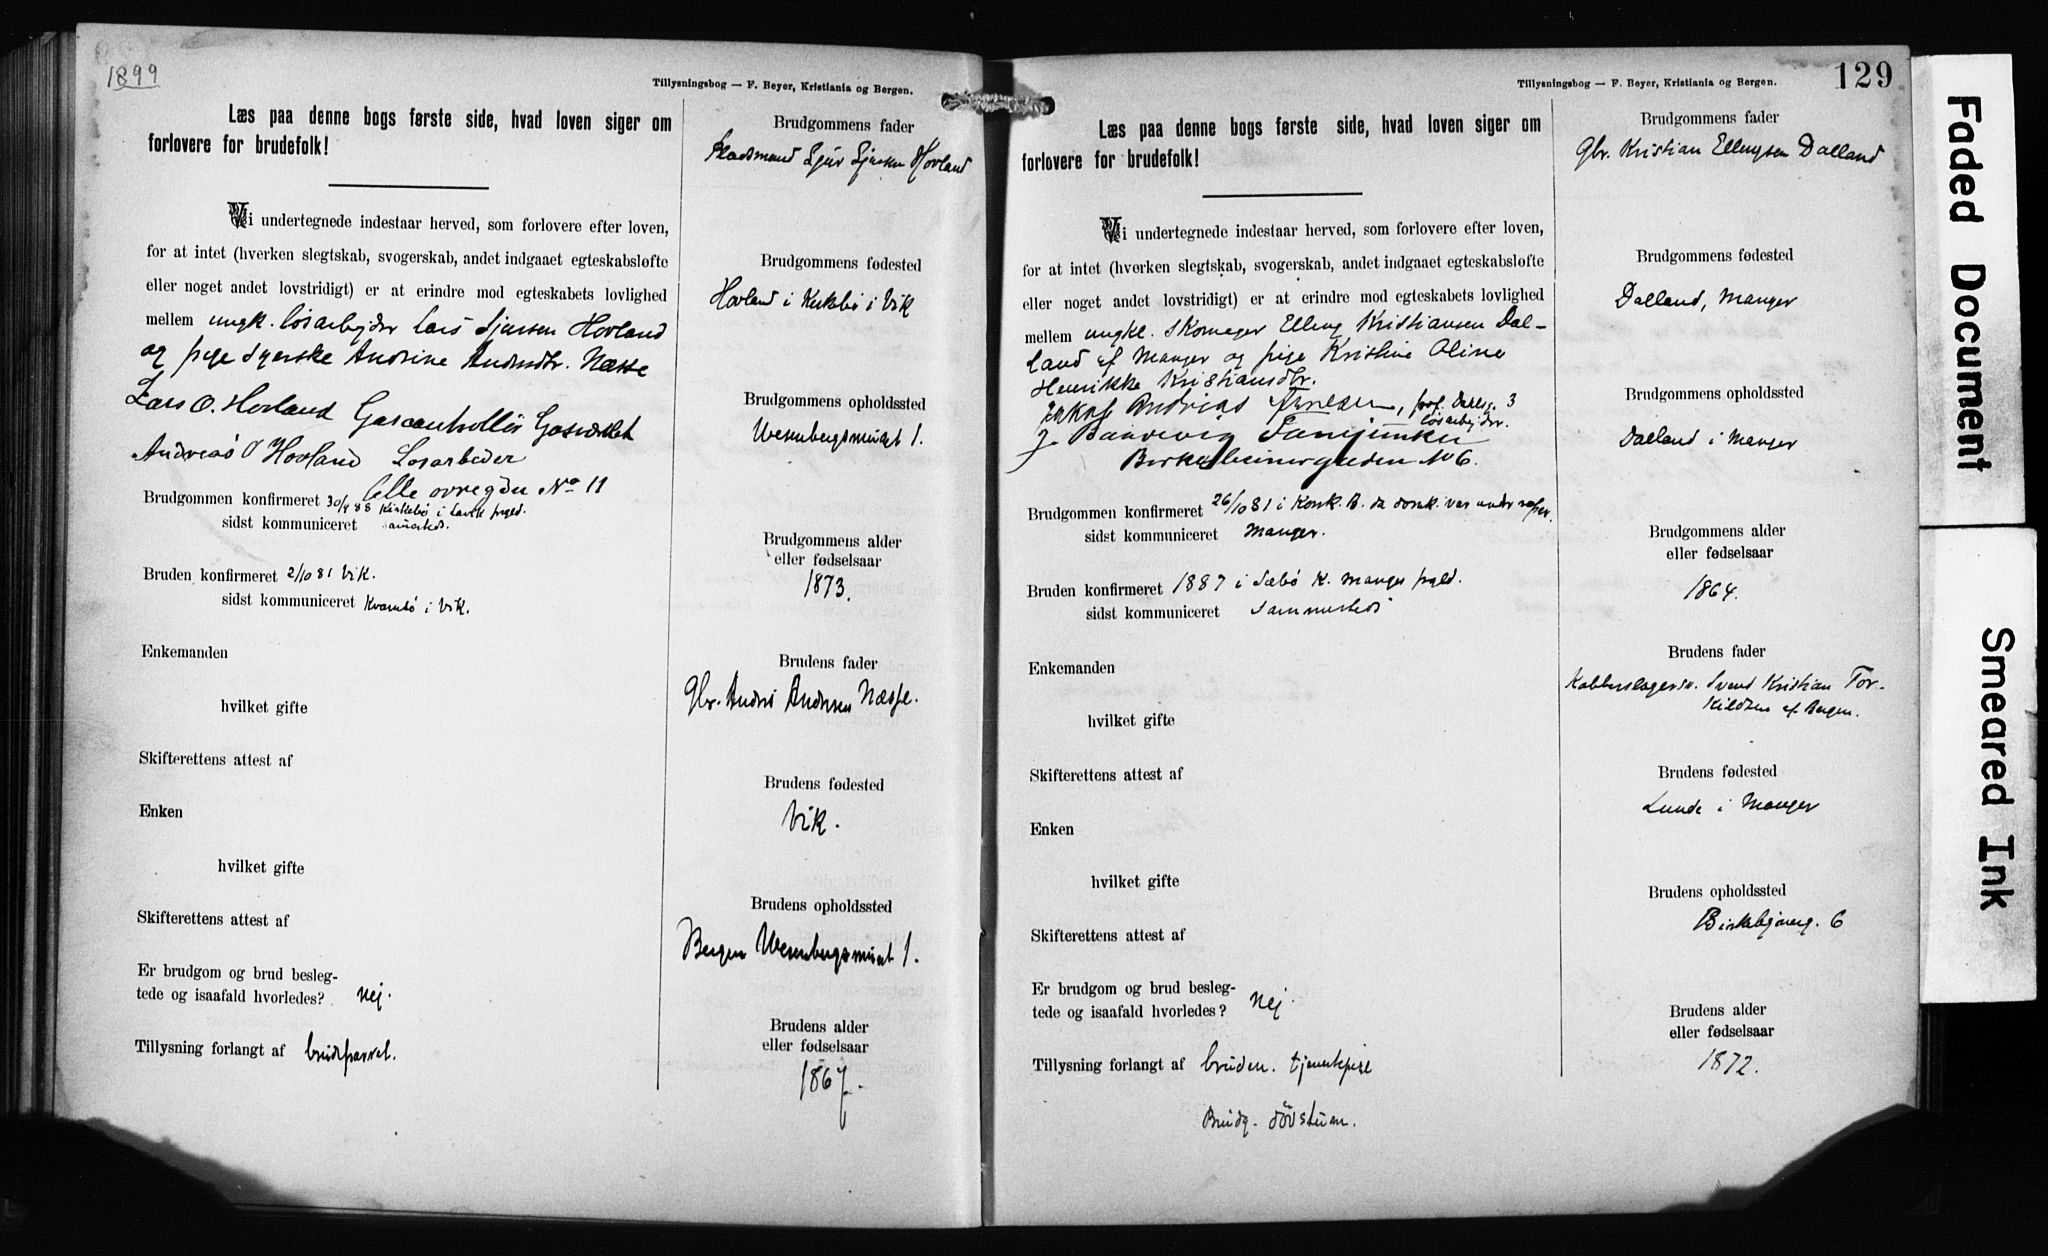 1899
Tillysningsbog — F. Beyer, Kristiania og Bergen.
Læs paa denne bogs første side, hvad loven siger om
forlovere for brudefolk!
Vi undertegnede indestaar herved, som forlovere efter loven,
for at intet (hverken slegtskab, svogerskab, andet indgaaet egteskabsløfte
eller noget andet lovstridigt) er at erindre mod egteskabets lovlighed
mellem ungk. løsarbejder Lars Sjursen Hovland
og pige Syerske Andrine Andersdtr. Næsse
Lars O. Hovland Gascontrollør Gasværket
Andreas O Hovland Løsarbeder
Lille øvregaden No 11
Brudgommen konfirmeret 30/9 88 Kirkebø i Lavik prgld.
sidst kommuniceret sammesteds.
Bruden konfirmeret 2/10 81 Vik.
sidst kommuniceret Kvamsø i Vik.
Enkemanden
hvilket gifte
Skifterettens attest af
Enken
hvilket gifte
Skifterettens attest af
Er brudgom og brud besleg-
tede og isaafald hvorledes? Nej.
Tillysning forlangt af brudeparret.
Brudgommens fader
Pladsmand Sjur Sjursen Hovland
Brudgommens fødested
Hovland i Kirkebø i Vik
Brudgommens opholdssted
Wesenbergsmuget 1.
Brudgommens alder
eller fødselsaar
1873.
Brudens fader
Gbr. Anders Andersen Næsse.
Brudens fødested
Vik.
Brudens opholdssted
Bergen Wesenbergsmuget 1.
Brudens alder
eller fødselsaar
1867.
Tillysningsbog — F. Beyer, Kristiania og Bergen.
129
Læs paa denne bogs første side, hvad loven siger om
forlovere for brudefolk!
Vi undertegnede indestaar herved, som forlovere efter loven,
for at intet (hverken slegtskab, svogerskab, andet indgaaet egteskabsløfte
eller noget andet lovstridigt) er at erindre mod egteskabets lovlighed
mellem ungkl. skomager Elling Kristiansen Dal-
land af Manger og pige Kristine Oline
Henrikke Kristiansdtr.
Jakob Andreas 3
løsarbejder.
J.
Birkebeinergaden No 6.
Brudgommen konfirmeret 26/10 81 i Korsk. B. da domk. var under
sidst kommuniceret Manger.
Bruden konfirmeret 1887 i Sæbø K. Manger prgld.
sidst kommuniceret Sammesteds
Enkemanden
hvilket gifte
Skifterettens attest af
Enken
hvilket gifte
Skifterettens attest af
Er brudgom og brud besleg-
tede og isaafald hvorledes? Nej.
Tillysning forlangt af bruden. tjenestepige
Brudg. døvstum.
Brudgommens fader
Gbr. Kristian Ellingsen Dalland
Brudgommens fødested
Dalland, Manger
Brudgommens opholdssted
Dalland i Manger
Brudgommens alder
eller fødselsaar
1864.
Brudens fader
Kobberslagersv. Svend Kristian Tor-
kildsen af Bergen.
Brudens fødested
Lunde i Manger
Brudens opholdssted
Birkebjnerg. 6
Brudens alder
eller fødselsaar
1872.
Faded Document
Smeared Ink